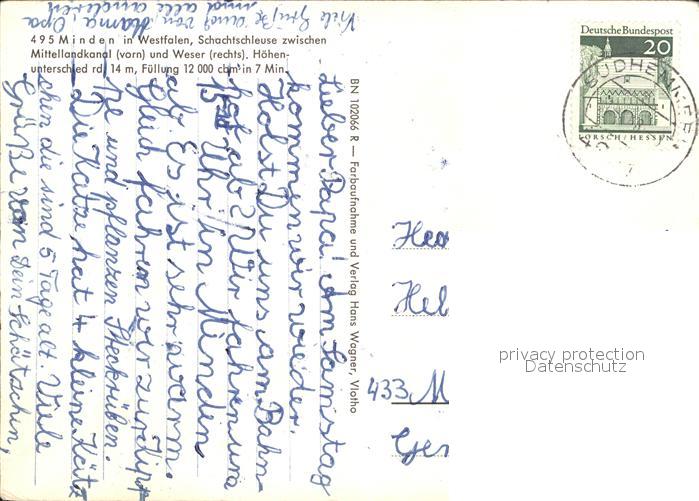 495 Minden in Westfalen, Schachtschleuse zwischen
Mittellandkanal (vorn) und Weser (rechts). Höhen-
unterschied rd. 14 m, Füllung 12 000 cbm in 7 Min.
Lieber Papa! Am Samstag
kommen wir wieder.
Holst Du uns am Bahn-
hof ab? Wir fahren um
15 Uhr in Minden
ab. Es ist sehr warm.
Gleich fahren wir zur Lipp
pe und pflanzen Steckrüben.
Die Katze hat 4 kleine Kätz
chen die sind 5 Tage alt. Viele
Grüße von Dein Schätzchen,
Viele Grüße auch von Mama, Opa
und alle anderen
BN 102066 R — Farbaufnahme und Verlag Hans Wagner, Vlotho
Deutsche Bundespost
20
LORSCH/HESSEN
Her
Hel
433 M
Ger
privacy protection
Datenschutz